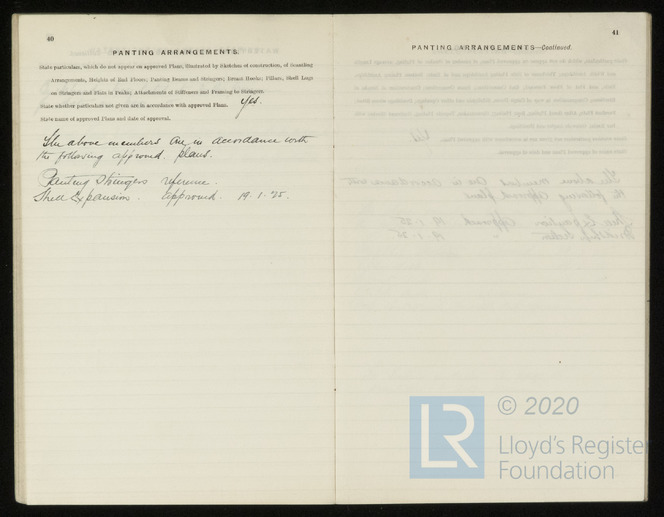 40
PANTING ARRANGEMENTS.
State particulars, which do not appear on approved Plans, illustrated by Sketches of construction, of Sounding
Arrangements, Heights of End Floors; Panting Beams and Stringers; Breast Hooks; Pillars, Shell Lugs
on Stringers and Flats in Peaks; Attachments of Stiffeners and Framing to Stringers.
State whether particulars not given are in accordance with approved Plans. Yes.
State name of approved Plans and date of approval.
The above members are in accordance with
the following approved plans.
Panting Stringers reference.
Shell Expansion. Approved. 19.1.25.
41
PANTING ARRANGEMENTS—Continued.
LR
© 2020
Lloyd's Register
Foundation